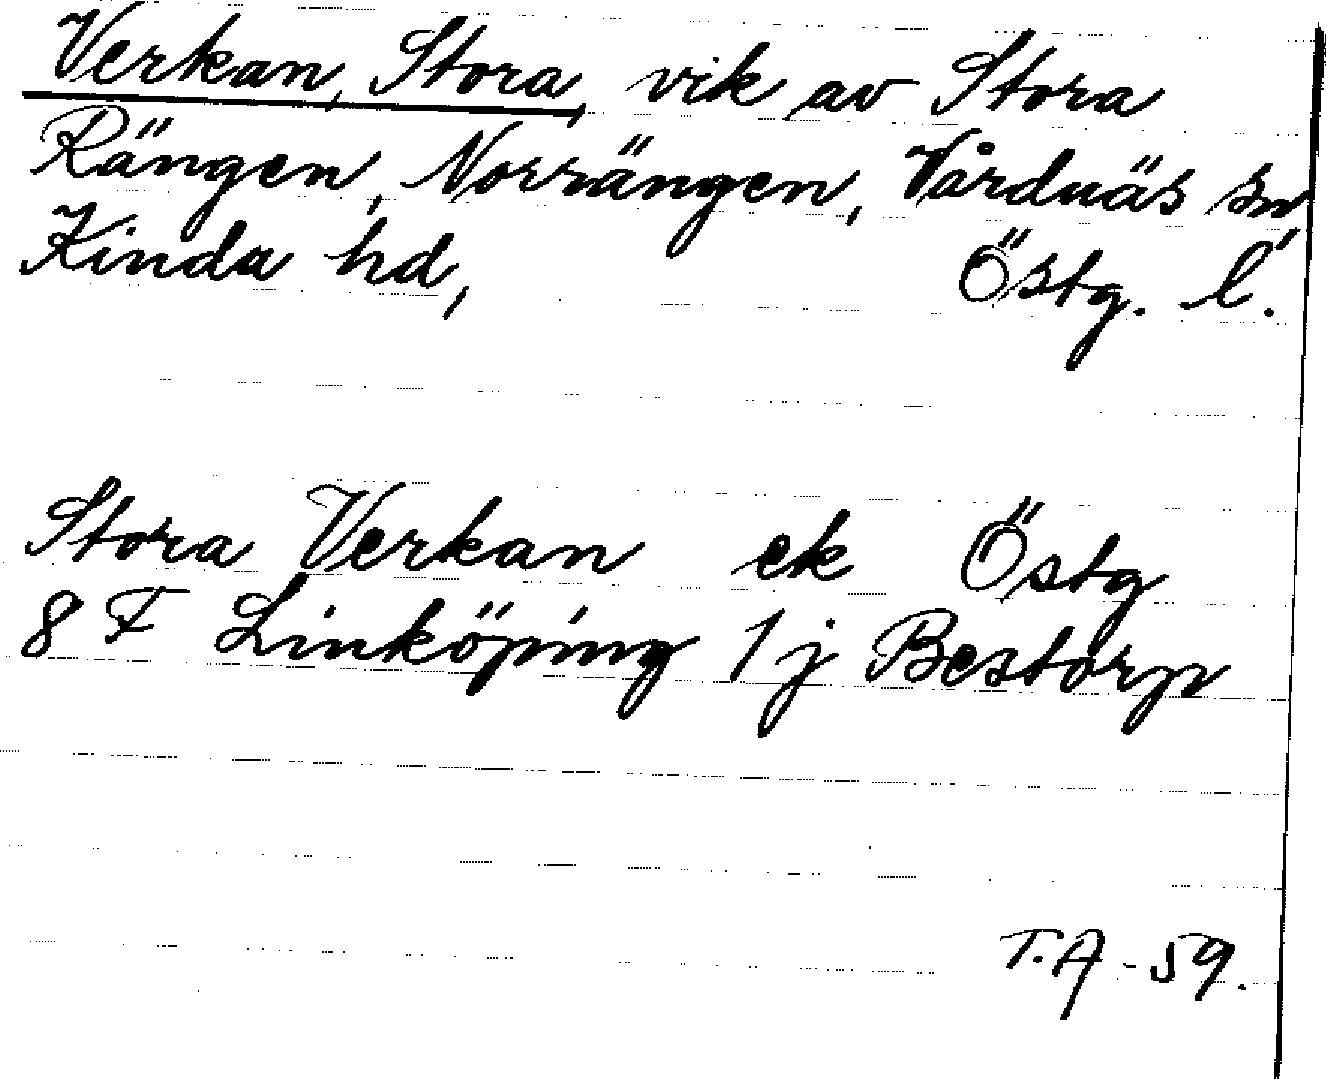 Verkan, Stora, vik av Stora
Rängen, Norrängen, Vårdnäs sn,
Kinda hd, Östg. l.
Stora Verkan ek Östg
8 F Linköping 1 j Bestorp
T.A - 59.